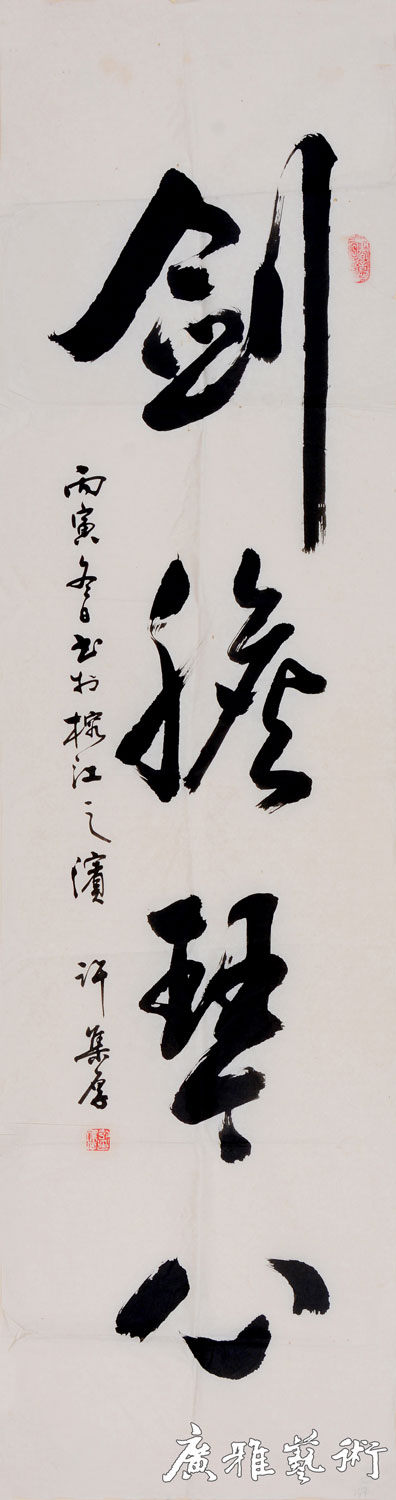 劍膽琴心
丙寅冬日書於榕江之濱 許集厚
廣雅藝術